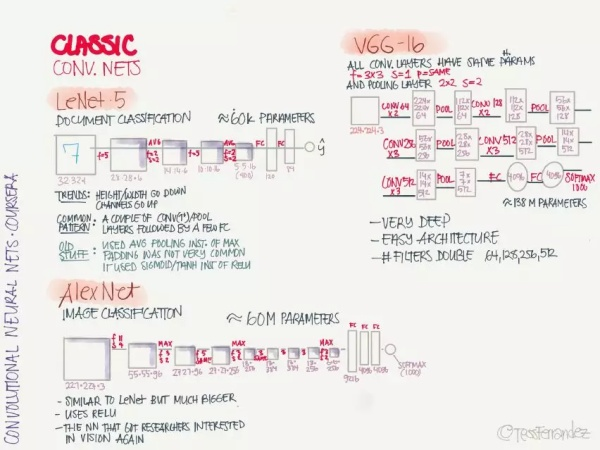 CLASSIC
CONV. NETS
LeNet-5
DOCUMENT CLASSIFICATION ≈60k PARAMETERS
7
f=5
AVG
f=2
S=2
f=5
AVG
f=2
S=2
FC
FC
ŷ
32·32·1
28·28·6
14·14·6
10·10·16
5·5·16
(400)
120
84
TRENDS: HEIGHT/WIDTH GO DOWN
CHANNELS GO UP
COMMON PATTERN: A COUPLE OF CONV(1+)/POOL
LAYERS FOLLOWED BY A FEW FC
OLD STUFF: USED AVG POOLING INST. OF MAX
PADDING WAS NOT VERY COMMON
IT USED SIGMOID/TANH INST OF RELU
AlexNet
IMAGE CLASSIFICATION ≈60M PARAMETERS
227·227·3
55·55·96
27·27·96
MAX
MAX
SAME
MAX
FC
FC
FC
9216
4096
4096
SOFTMAX
(1000)
- SIMILAR TO LeNet BUT MUCH BIGGER
- USES RELU
- THE NN THAT GOT RESEARCHERS INTERESTED
IN VISION AGAIN
VGG-16
ALL CONV. LAYERS HAVE SAME # PARAMS
f=3×3 S=1 P=SAME
AND POOLING LAYER 2×2 S=2
224·224·3
CONV 64
X2
224×
224×
64
POOL
112×
112×
64
CONV 128
X2
112×
112×
128
POOL
56×
56×
128
CONV 256
X3
56×
56×
256
POOL
28×
28×
256
CONV 512
X3
28×
28×
512
POOL
14×
14×
512
CONV 512
X3
14×
14×
512
POOL
7×
7×
512
FC
4096
FC
4096
SOFTMAX
1000
≈138 M PARAMETERS
- VERY DEEP
- EASY ARCHITECTURE
- # FILTERS DOUBLE 64,128,256,512
CONVOLUTIONAL NEURAL NETS : COURSERA
©TessFerrandez